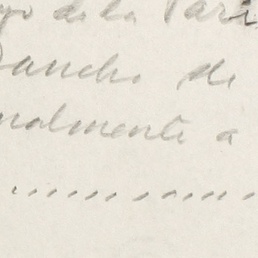 de la Pari
Rancho de
nalmente a